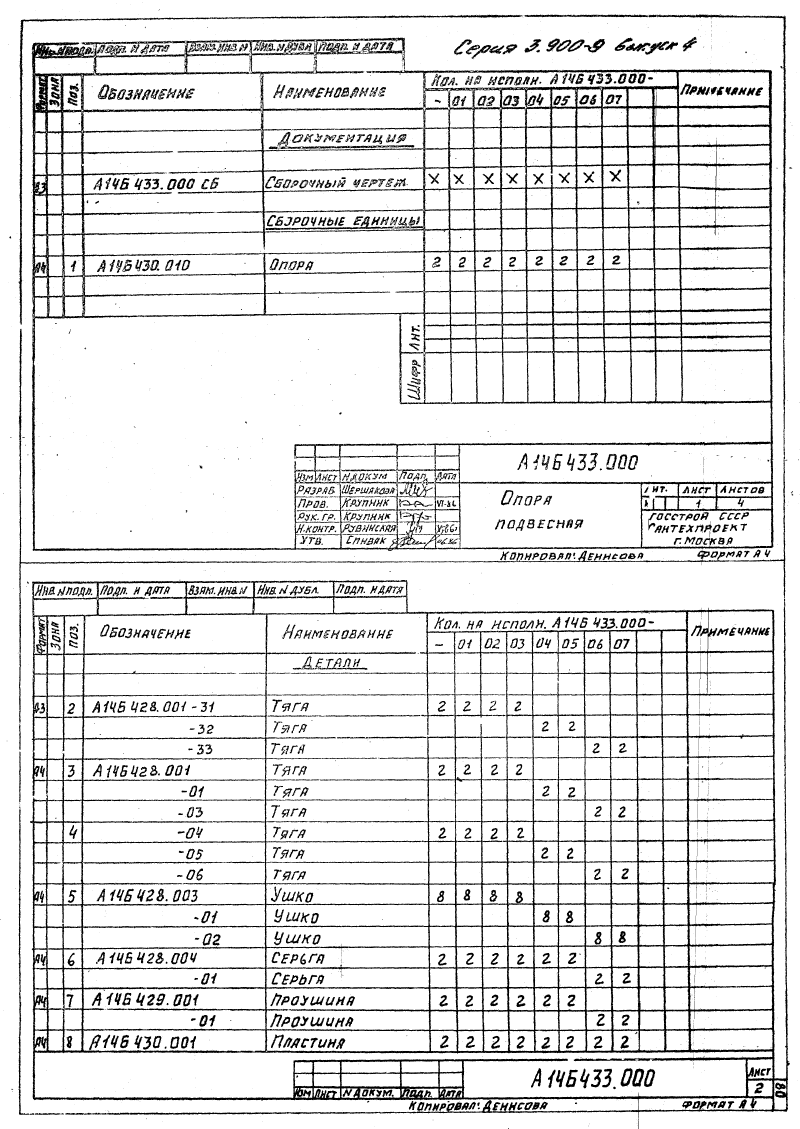 Серия 3.900-9 выпуск 4
Инв. № подл. Подп. и дата Взам. инв № Инв. № дубл Подп. и дата
Формат Зона Поз. Обозначение Наименование Кол. на исполн. А14Б433.000- Примечание
- 01 02 03 04 05 06 07
Документация
А3 А14Б 433.000 СБ Сборочный чертеж X X X X X X X X
Сборочные единицы
А4 1 А14Б430.010 Опора 2 2 2 2 2 2 2 2
Лит.
Шифр
А14Б433.000
Изм Лист № докум Подп. Дата
Разраб Шершакова
Пров. Крупник VI-86
Рук. гр. Крупник
Н.контр. Рувинская
Утв. Спивак 06.86
Опора
подвесная
Лит. Лист Листов
1 4
Госстрой СССР
Сантехпроект
г. Москва
Копировал: Денисова Формат А4
Инв № подл. Подп. и дата Взам. инв. № Инв. № дубл. Подп. и дата
Формат Зона Поз. Обозначение Наименование Кол. на исполн. А14Б 433.000- Примечание
- 01 02 03 04 05 06 07
Детали
А3 2 А14Б 428.001 -31 Тяга 2 2 2 2
-32 Тяга 2 2
-33 Тяга 2 2
А4 3 А14Б428.001 Тяга 2 2 2 2
-01 Тяга 2 2
-03 Тяга 2 2
4 -04 Тяга 2 2 2 2
-05 Тяга 2 2
-06 Тяга 2 2
А4 5 А14Б428.003 Ушко 8 8 8 8
-01 Ушко 8 8
-02 Ушко 8 8
А4 6 А14Б428.004 Серьга 2 2 2 2 2 2
-01 Серьга 2 2
А4 7 А14Б 429.001 Проушина 2 2 2 2 2 2
-01 Проушина 2 2
А4 8 А14Б 430.001 Пластина 2 2 2 2 2 2 2 2
А14Б433.000
Изм Лист № докум. Подп. Дата
Лист
2
80
Копировал: Денисова Формат А4